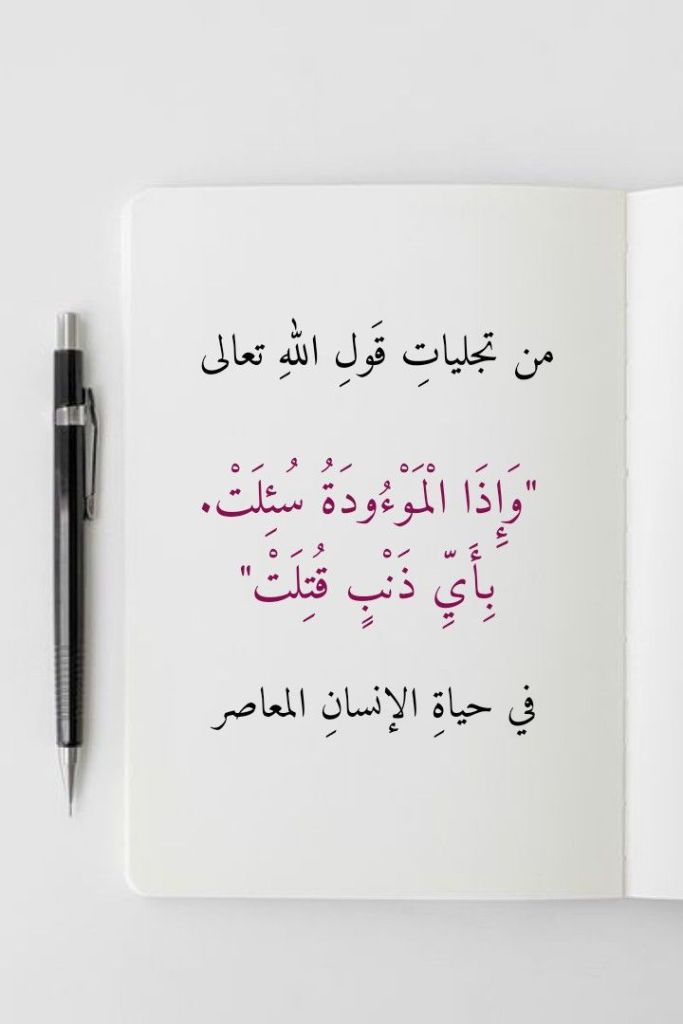 من تجلياتِ قَولِ اللهِ تعالى
"وَإِذَا الْمَوْءُودَةُ سُئِلَتْ.
بِأَيِّ ذَنْبٍ قُتِلَتْ"
في حياةِ الإنسانِ المعاصر